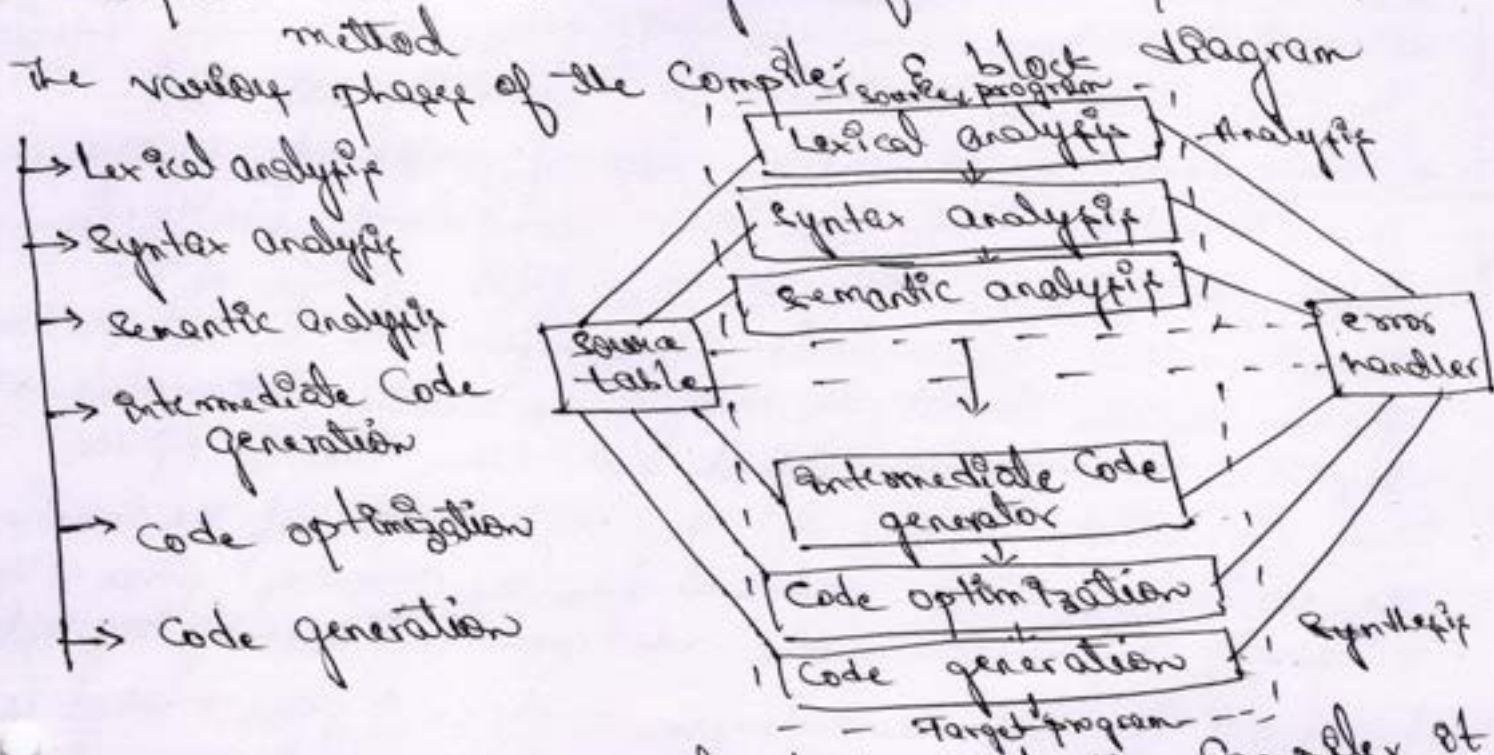 method
The various phases of the Compiler & block diagram
→ Lexical analysis
→ Syntax analysis
→ Semantic analysis
→ Intermediate Code
generation
→ Code optimization
→ Code generation
Source program
Lexical analysis
Analysis
Syntax analysis
Semantic analysis
Source
table
error
handler
Intermediate Code
generator
Code optimization
Code generation
Synthesis
Target program